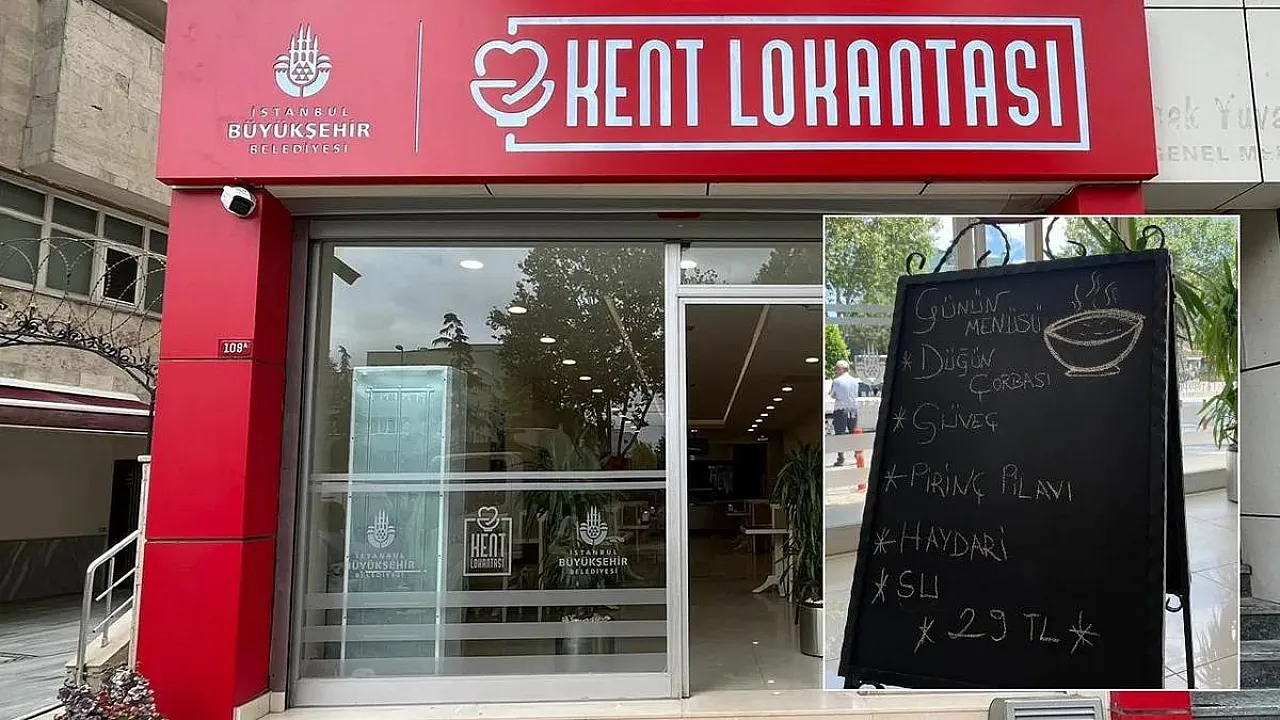 İSTANBUL
BÜYÜKŞEHİR
BELEDİYESİ
KENT LOKANTASI
Yuva
GENEL
108A
İSTANBUL
BÜYÜKŞEHİR
BELEDİYESİ
KENT
LOKANTASI
İSTANBUL
BÜYÜKŞEHİR
BELEDİYESİ
GÜNÜN
MENÜSÜ
* DÜĞÜN
ÇORBASI
* GÜVEÇ
* PİRİNÇ PİLAVI
* HAYDARİ
* SU
* 29 TL *